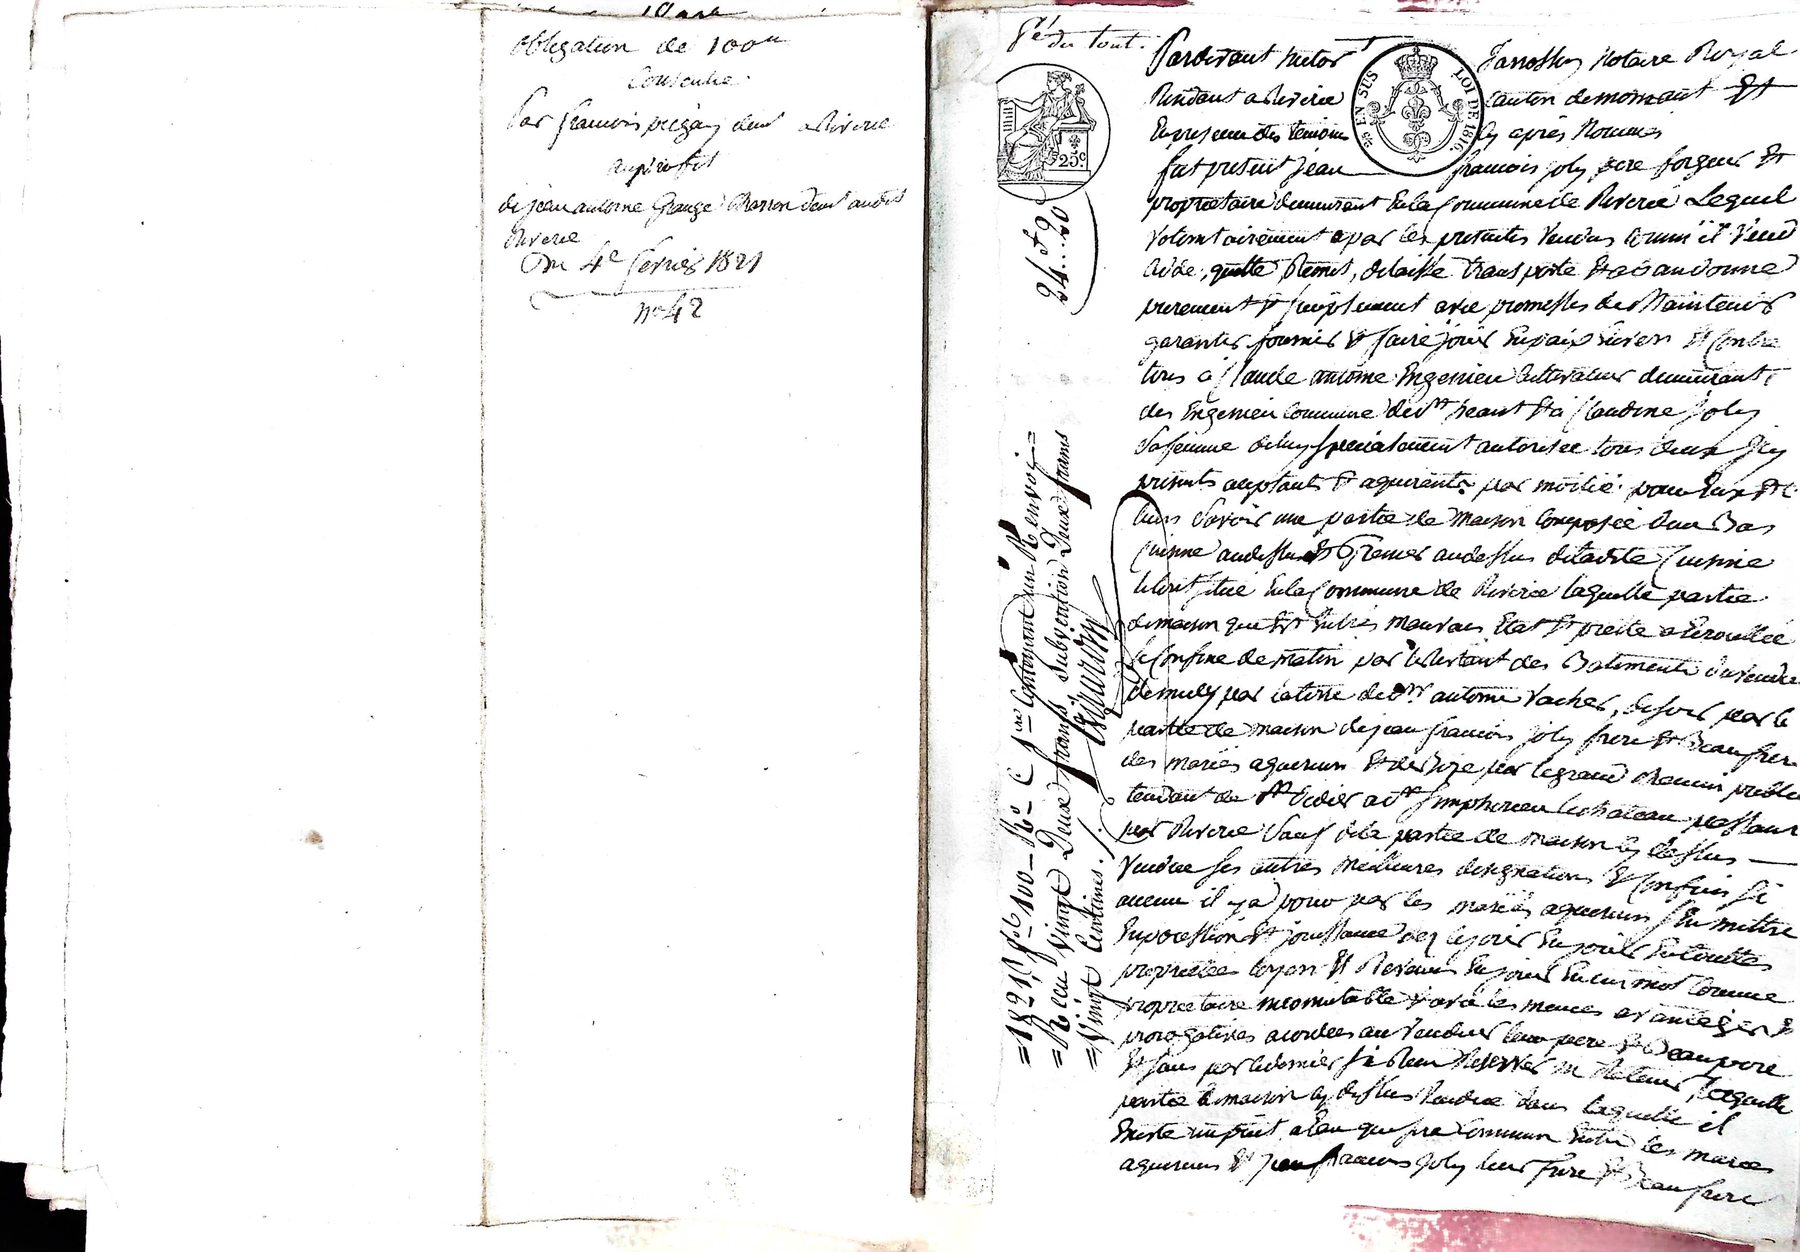 obligation de 100#
Consentie
Par francois pizay demt a Riverie
au profit
de jean antoine Grange Maçon demt audit
Riverie
Du 4e fevrier 1821
no 42
Pé du tout.
Pardevant victor Notaire Royal
Residant a Riverie canton de mornant Et
En presence des temoins cy après Nommés
fut present jean francois joly pere forgeur Et
proprietaire demeurant En la Commune de Riverie Lequel
volontairement a par les presentes vendu comm'il vend
cède, quitte Remet, delaisse transporte Et abandonne
purement & simplement avec promesses de Maintenir
garantir fournir & faire joüir En paix Envers Et Contre
tous a Claude antoine Engenieu Cultivateur demeurant
des Engenieu commune de St jean Et a Claudine joly
sa femme de luy specialement autorisée tous deux Icy
présents acceptants & aquerants par moitié pour Eux Et l
leurs savoir une partie de maison composée d'un Bas
Cuisine au dessus Et Grenier au dessus de ladite Cuisine
le tout situé En la Commune de Riverie laquelle partie
de maison que Est En très mauvais Etat Et prette a Ecroullée
se Confine de matin par le Restant des Batiments du vendeur
de midy par la terre de Sr. antoine vacher, de soir par le
partie de maison de jean francois joly frere Et Beau frere
des mariés aquereurs Et de Bize par le grand chemin public
tendant de St Didier a St Simphorien le chateau passant
par Riverie sauf de la partie de maison cy dessus
Vendue ses autres meilleures designations & Confins si
aucun il y a pour par les mariés aquereurs s'En mettre
En possession Et jouissance dez ce jour En jouir En toutes
proprietées loyers Et Revenus En jouir En un mot comme
proprietaire incomutable & avec les memes avantages &
prerogatives acordées au vendeur leur pere Et Beau pere
Et sans par le dernier s'i Rien Reserver ni Retenir laquelle
partie de maison cy dessus Vendue dans laquelle il
Existe un puit a Eau que sera Commun Entre les mariés
aquereurs Et jean francois joly leur frere Et Beau frere
EN SUS
LOI DE 1816.
25c.
24 .. 20
1821 fol 100 Ro C Contenant un Renvoi
Reçu vingt Deux francs, Subvention Deux francs
Vingt Centimes.